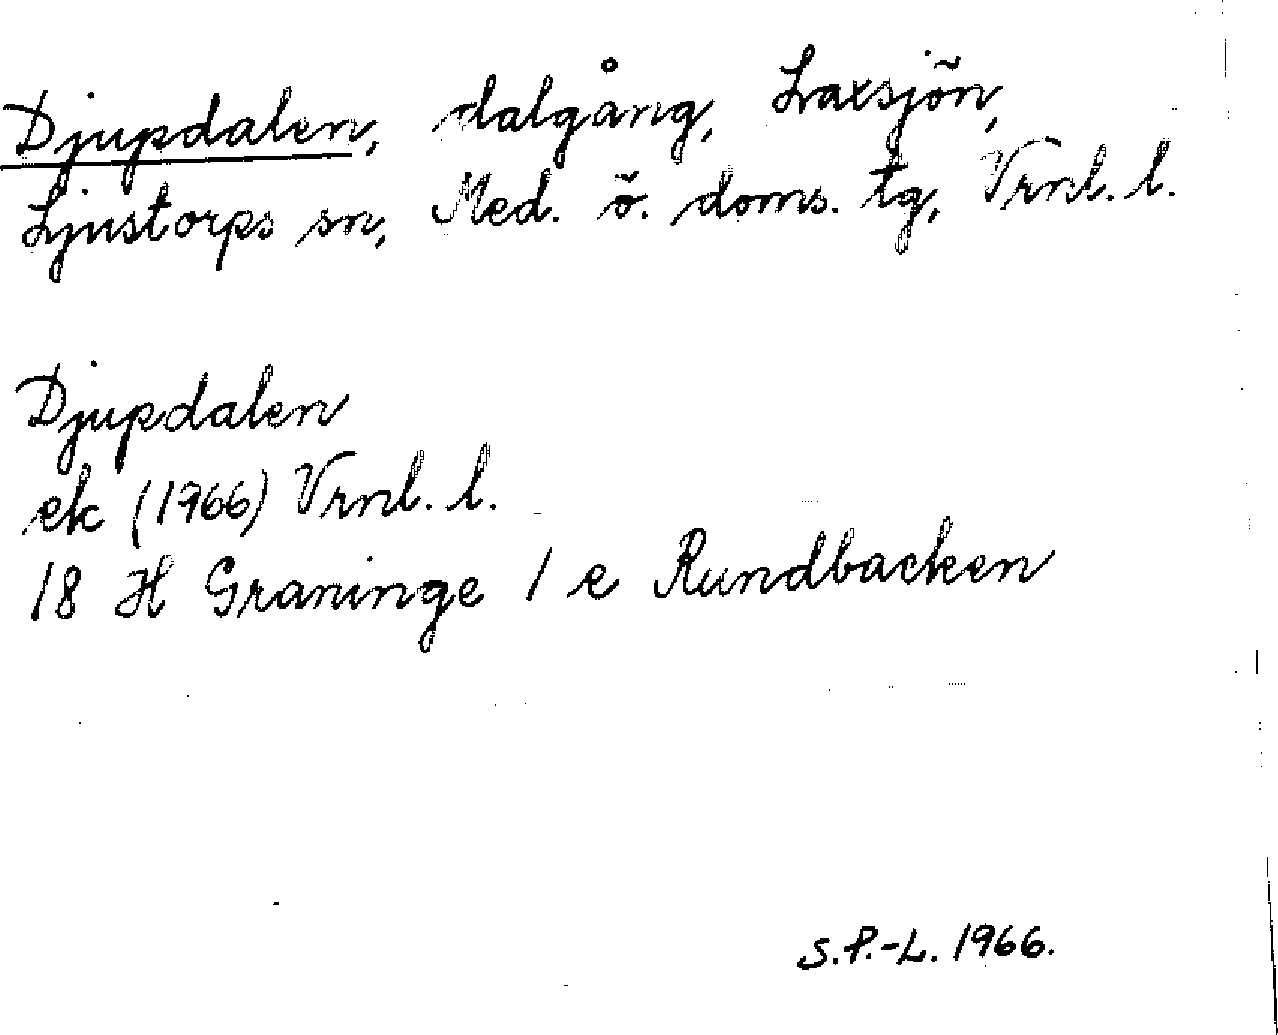 Djupdalen, dalgång, Laxsjön,
Ljustorps sn, Med. ö. doms. tg, Vrnl. l.
Djupdalen
ek (1966) Vrnl. l.
18 H Graninge 1 e Rundbacken
S.P.-L. 1966.